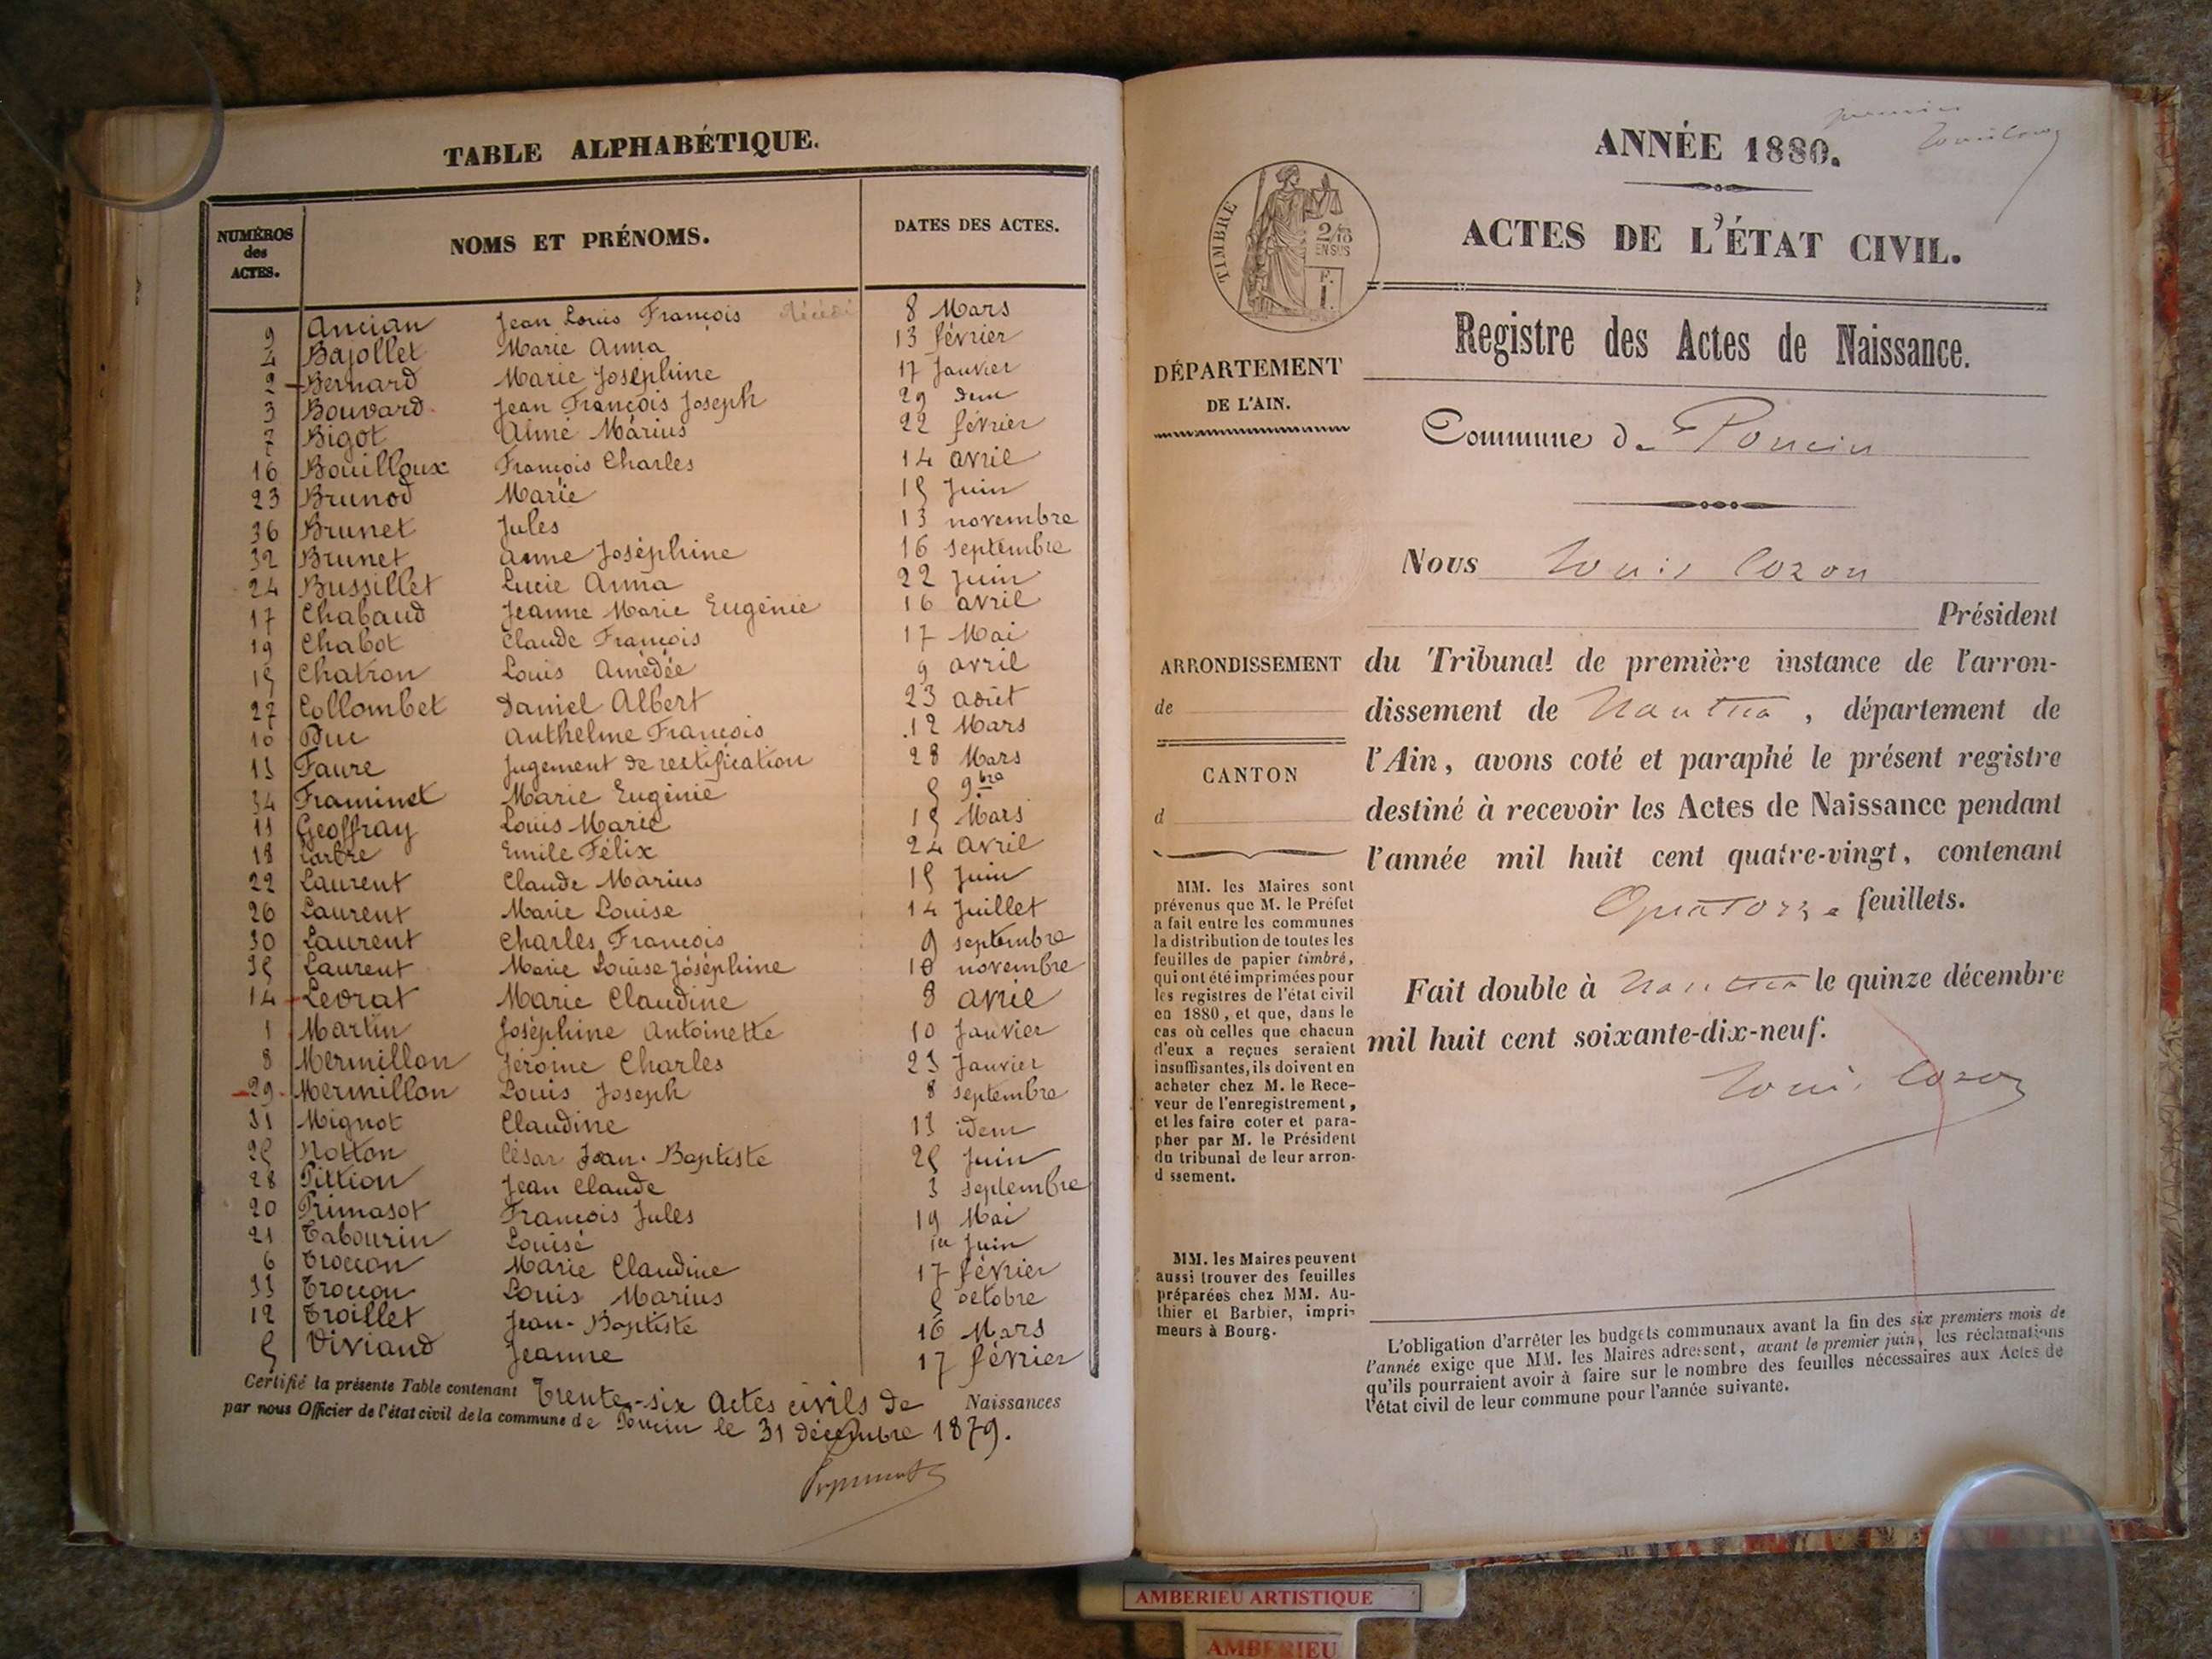 TABLE ALPHABÉTIQUE.
NUMÉROS des ACTES. NOMS ET PRÉNOMS. DATES DES ACTES.
9 Ancian Jean Louis François Décédé 8 Mars
4 Bajollet Marie Anna 13 février
2 Bernard Marie Joséphine 17 Janvier
3 Bouvard Jean François Joseph 29 dem
7 Bigot Aimé Márius 22 février
16 Bouilloux François Charles 14 avril
23 Brunod Marie 15 Juin
36 Brunet Jules 13 novembre
32 Brunet Anne Joséphine 16 septembre
24 Bussillet Lucie Anna 22 Juin
17 Chabaud Jeanne Marie Eugénie 16 avril
19 Chabot Claude François 17 Mai
15 Chatron Louis Amédée 9 avril
27 Collombet Daniel Albert 23 août
10 Duc Anthelme François 12 Mars
13 Faure Jugement de rectification 28 Mars
34 Framinet Marie Eugénie 5 9.bre
11 Geoffray Louis Marie 15 Mars
18 Larbre Emile Félix 24 avril
22 Laurent Claude Marius 15 Juin
26 Laurent Marie Louise 14 Juillet
30 Laurent Charles François 9 septembre
35 Laurent Marie Louise Joséphine 10 novembre
14 Levrat Marie Claudine 8 avril
1 Martin Joséphine Antoinette 10 Janvier
8 Mermillon Jérôme Charles 23 Janvier
29 Mermillon Louis Joseph 8 septembre
31 Mignot Claudine 13 idem
25 Notton César Jean-Baptiste 25 Juin
28 Pittion Jean Claude 3 septembre
20 Primasot François Jules 19 Mai
21 Tabourin Louise 1er Juin
6 Troccon Marie Claudine 17 février
33 Troccon Louis Marius 5 octobre
12 Troillet Jean-Baptiste 16 Mars
5 Viviand Jeanne 17 février
Certifié la présente Table contenant Trente-six Actes civils de Naissances
par nous Officier de l'état civil de la commune de Poncin le 31 décembre 1879.
ANNÉE 1880.
ACTES DE L'ÉTAT CIVIL.
TIMBRE
2/10
EN SUS
Registre des Actes de Naissance.
DÉPARTEMENT
DE L'AIN.
Commune de Poncin
Nous Louis Cozon
Président
ARRONDISSEMENT
de
CANTON
d
du Tribunal de première instance de l'arron-
dissement de Nantua, département de
l'Ain, avons coté et paraphé le présent registre
destiné à recevoir les Actes de Naissance pendant
l'année mil huit cent quatre-vingt, contenant
Quatorze feuillets.
Fait double à Nantua le quinze décembre
mil huit cent soixante-dix-neuf.
Louis Cozon
MM. les Maires sont
prévenus que M. le Préfet
a fait entre les communes
la distribution de toutes les
feuilles de papier timbré,
qui ont été imprimées pour
les registres de l'état civil
en 1880, et que, dans le
cas où celles que chacun
d'eux a reçues seraient
insuffisantes, ils doivent en
acheter chez M. le Rece-
veur de l'enregistrement,
et les faire coter et para-
pher par M. le Président
du tribunal de leur arron-
d ssement.
MM. les Maires peuvent
aussi trouver des feuilles
préparées chez MM. Au-
thier et Barbier, impri-
meurs à Bourg.
L'obligation d'arrêter les budgets communaux avant la fin des six premiers mois de
l'année exige que MM. les Maires adressent, avant le premier juin, les réclamations
qu'ils pourraient avoir à faire sur le nombre des feuilles nécessaires aux Actes de
l'état civil de leur commune pour l'année suivante.
AMBERIEU ARTISTIQUE
AMBERIEU